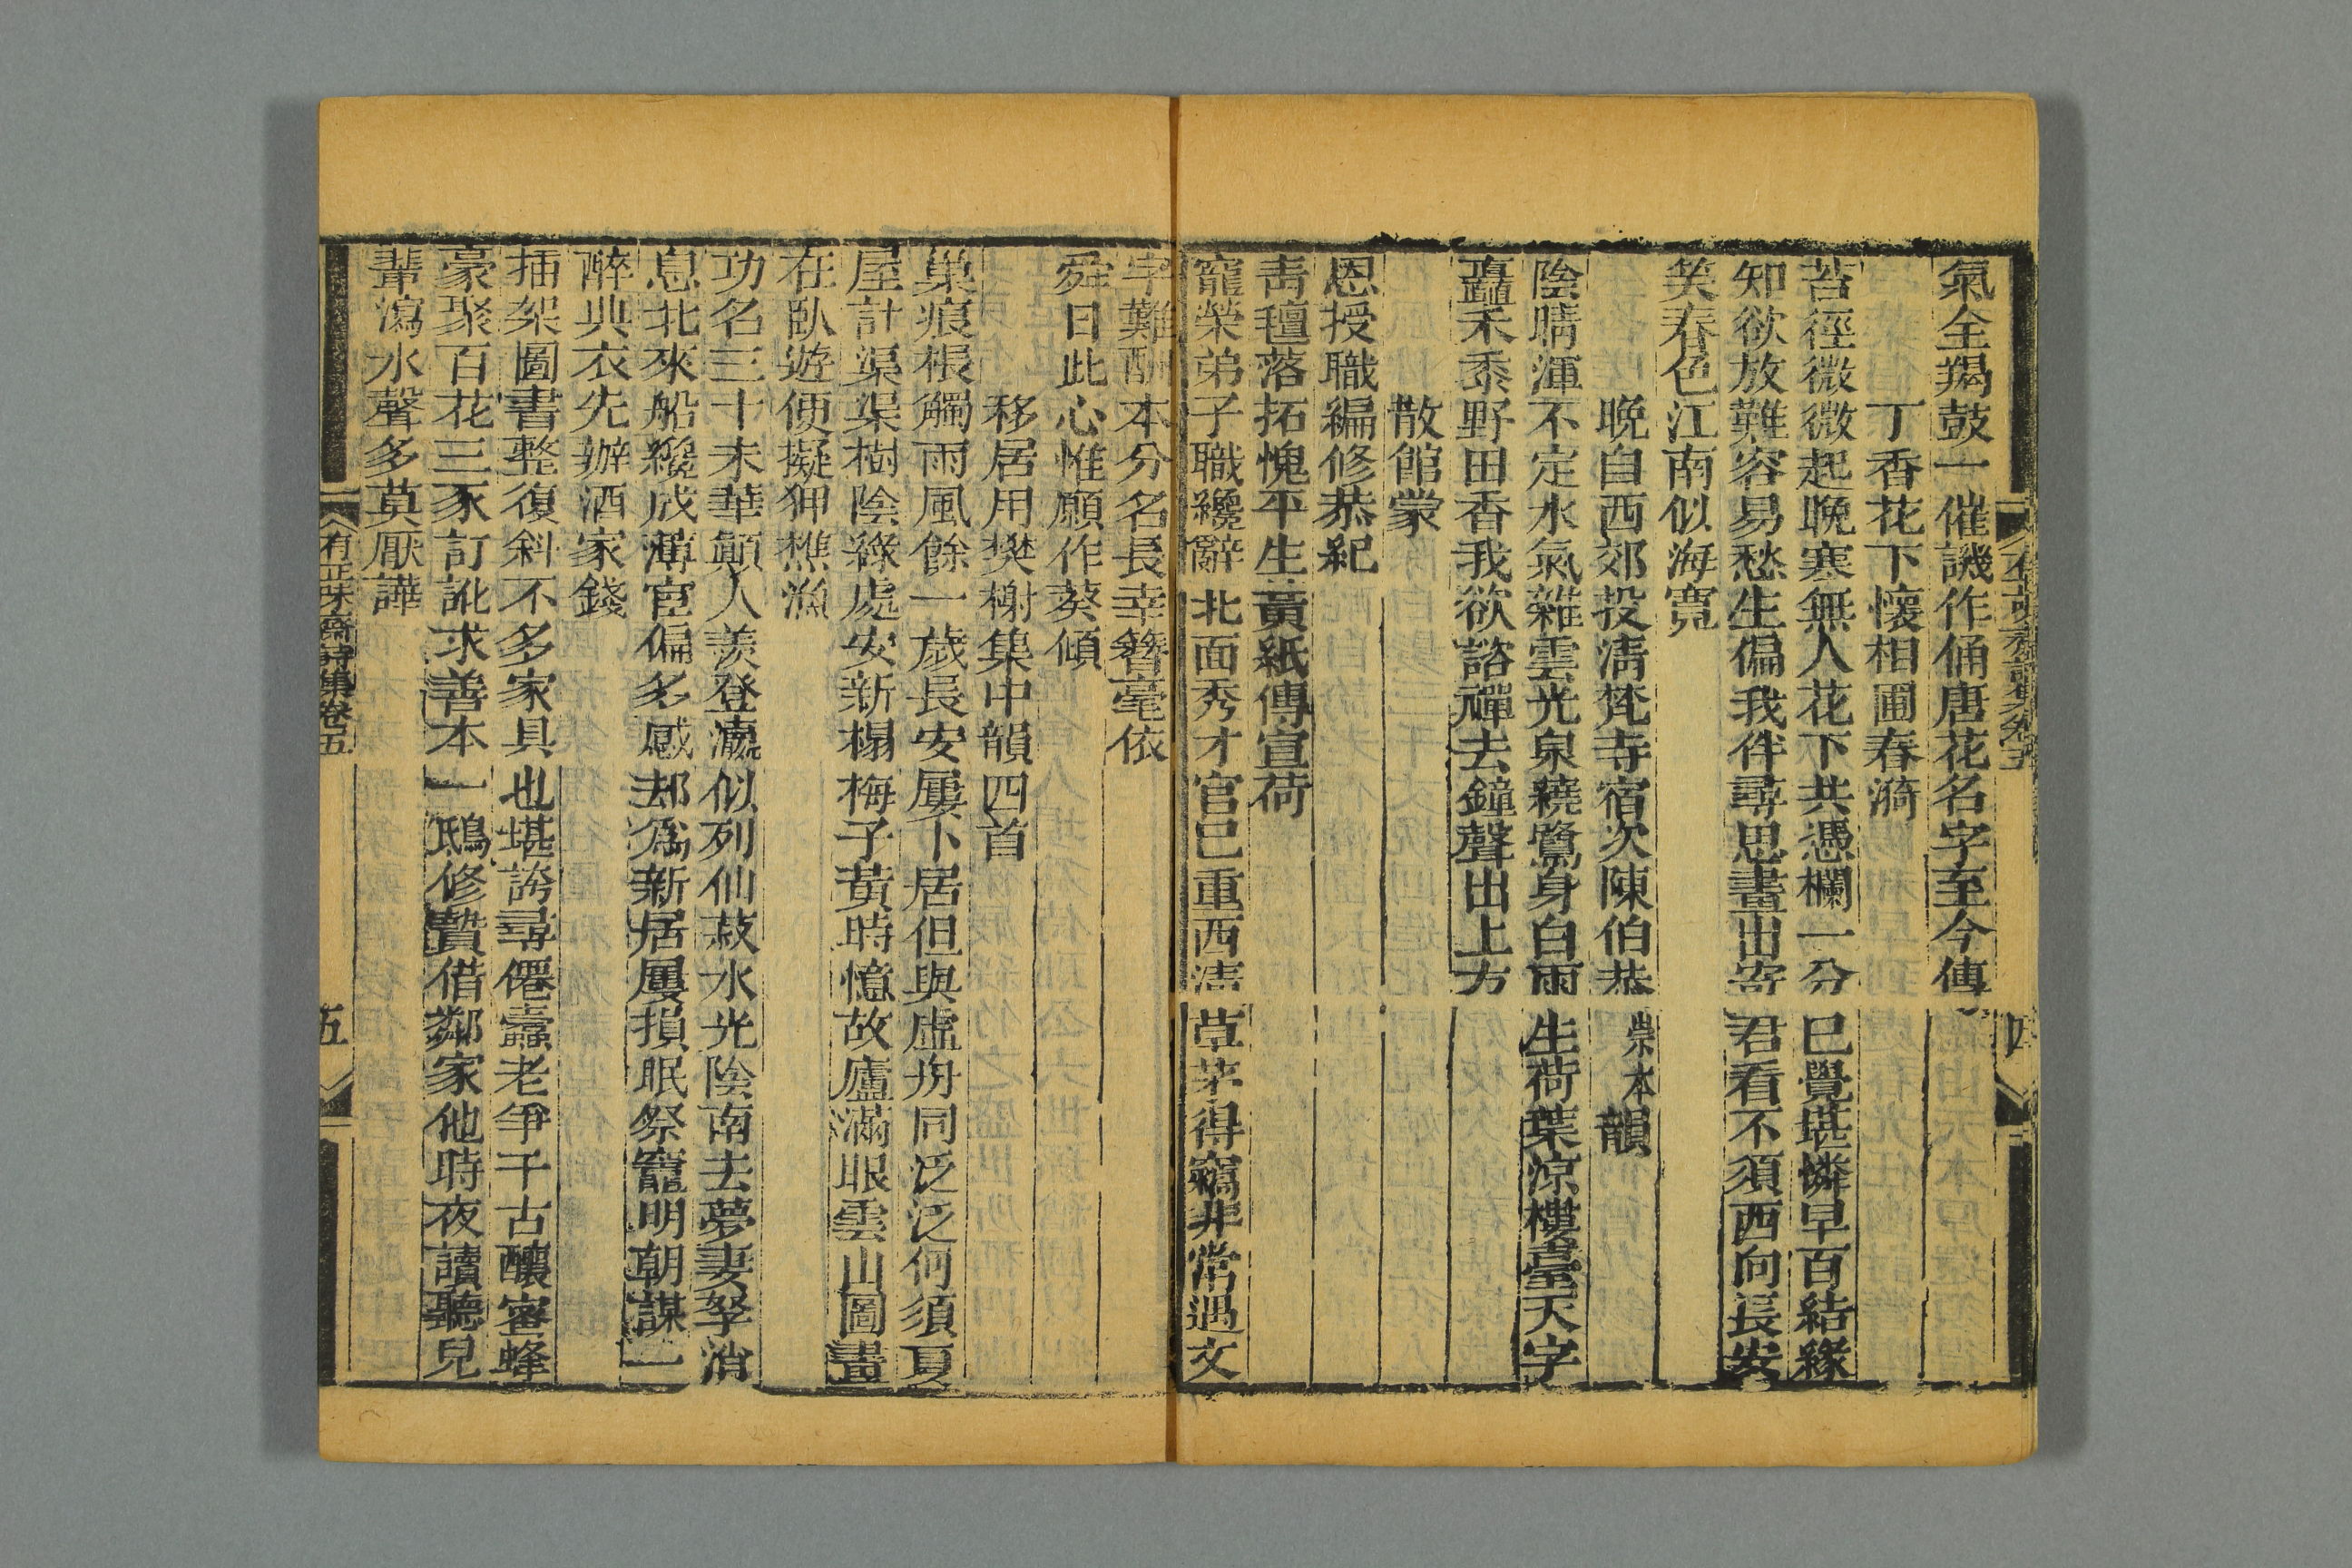 氣全羯鼓一催譏作俑唐花名字至今傳
丁香花下懷相圃春漪
苔徑微微起晚寒無人花下共憑欄一分巳覺堪憐早百結緣
知欲放難容易愁生偏我伴尋思畫出寄君看不須西向長安
笑春色江南似海寬
晚自西郊投淸梵寺宿次陳伯恭崇本韻
陰晴渾不定水氣雜雲光泉繞鷺身白雨生荷葉涼樓臺天字
矗禾黍野田香我欲諮禪去鐘聲出上方
散館蒙
恩授職編修恭紀
靑氊落拓愧平生黃紙傳宣荷
寵榮弟子職纔辭北面秀才官巳重西淸草茅得竊非常遇文
字難酬本分名長幸簪毫依
舜日此心惟願作葵傾
移居用樊榭集中韻四首
巢痕棖觸雨風餘一歲長安屢卜居但與虛舟同泛泛何須夏
屋計渠渠樹陰綠處安新榻梅子黃時憶故廬滿眼雲山圖畫
在臥遊便擬狎樵漁
功名三十未華顚人羨登瀛似列仙菽水光陰南去夢妻孥消
息北來船纔成薄宦偏多感却爲新居屢損眠祭竈明朝謀一
醉典衣先辦酒家錢
插架圖書整復斜不多家具也堪誇尋僊蠹老爭千古釀蜜蜂
豪聚百花三豕訂訛求善本一鴟修贄借鄰家他時夜讀聽兒
輩瀉水聲多莫厭譁
有正味齋詩集卷五
五